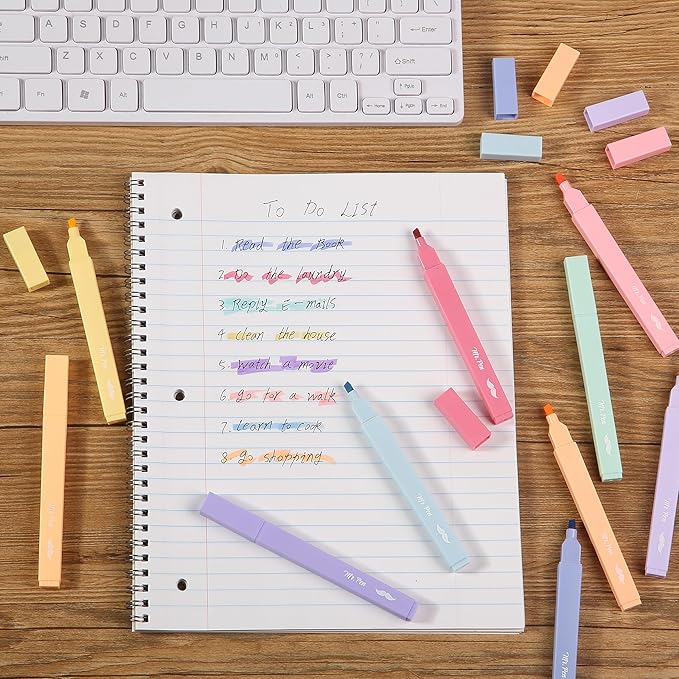 A S D F G H J K L : ; " ' Enter
Shift Z X C V B N M < , > . ? / Shift
Ctrl Fn Alt Alt Ctrl Home PgUp PgDn End
To Do List
1. Read the Book
2. Do the laundry
3 Reply E-mails
4 clean the house
5. Watch a movie
6. go for a walk
7. Learn to cook
8. go shopping
Mr. Pen
Mr. Pen
Mr. Pen
Mr. Pen
Mr. Pen
Mr. Pen
Mr. Pen
Mr. Pen
Mr. Pen